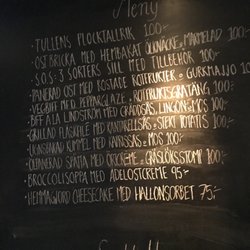 Meny
- TULLENS PLOCKTALLRIK 100:-
- OSTBRICKA MED HEMBAKAT & MARMELAD 100:-
- S.O.S: 3 SORTERS SILL MED TILLBEHÖR 100:-
- PANERAD OST MED ROSTADE ROTFRUKTER & GURKMAJO
- VEGBIFF MED PEPPARGLAZE & ROTFRUKTSGRATÄNG 100:-
- BIFF A LA LINDSTRÖM MED GRÄDDSÅS, LINGON & MOS 100:-
- GRILLAD FLÄSKFILÉ MED KANTARELLSÅS & STEKT POTATIS 100:-
- UGNSBAKAD KUMMEL MED & MOS 100:-
- UGNSBAKAD SPÄTTA MED ÖRTCREME & GRÄSLÖKSSTOMP 100:-
- BROCCOLISOPPA MED ÄDELOSTCREME 95:-
- HEMMAGJORD CHEESECAKE MED HALLONSORBET 75:-